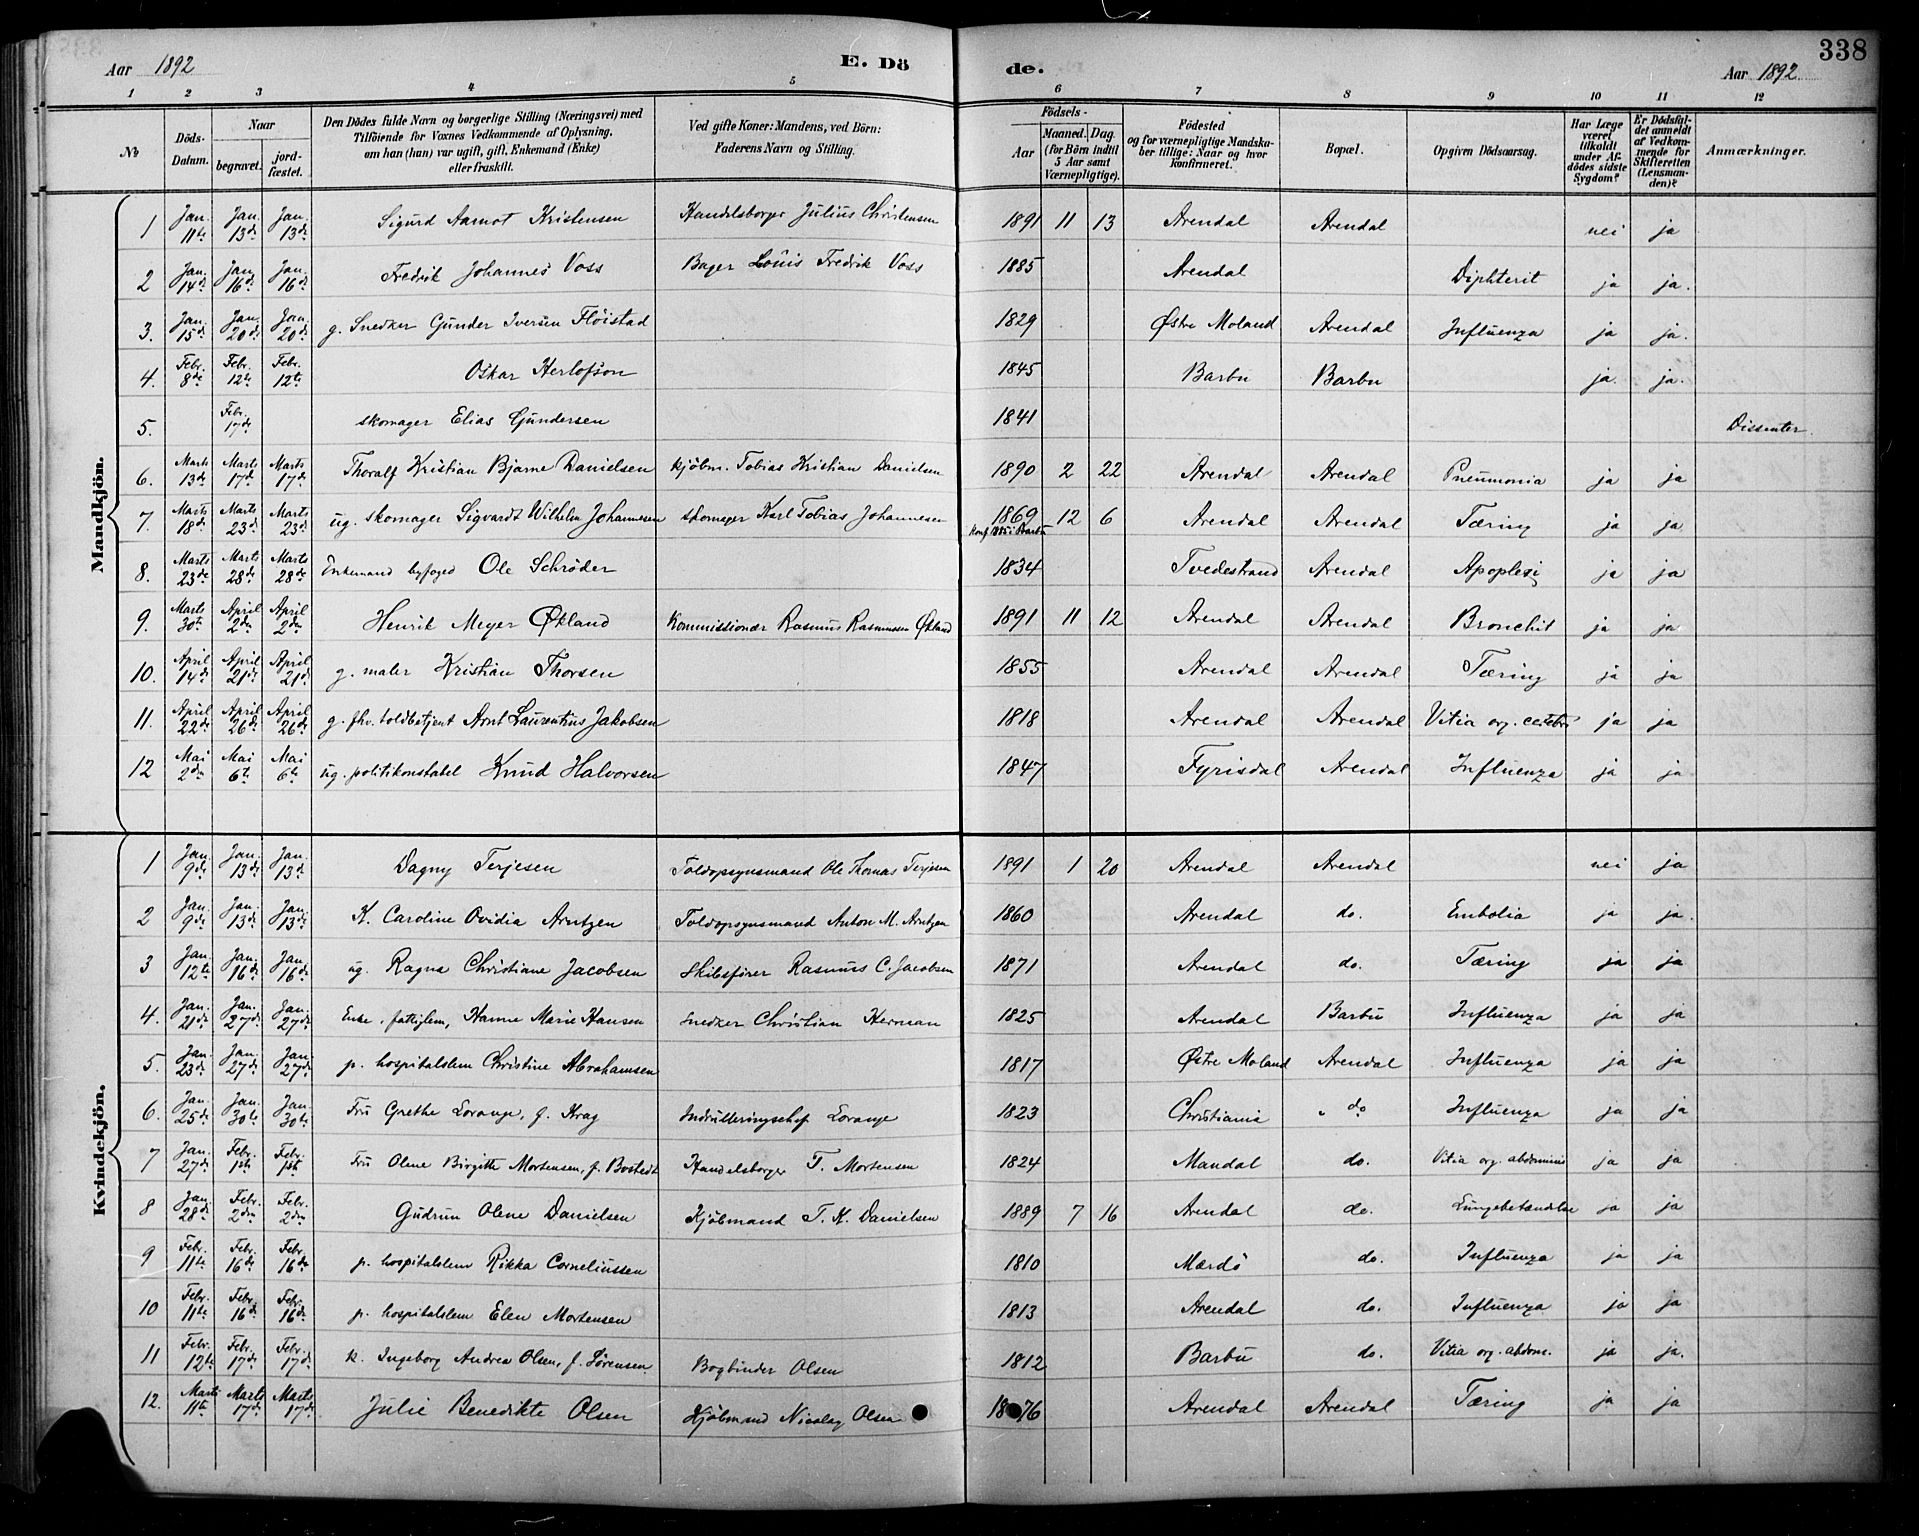 338
Aar 1892 E. Dö de. Aar 1892
1 2 3 4 5 6 7 8 9 10 11 12
No Döds-Datum. Naar begravet. jord-fæstet. Den Dödes fulde Navn og borgerlige Stilling (Næringsvei) med Tilföiende for Voxnes Vedkommende af Oplysning, om han (hun) var ugift, gift, Enkemand (Enke) eller fraskilt. Ved gifte Koner: Mandens, ved Börn: Faderens Navn og Stilling. Födsels- Aar Maaned. Dag. (for Börn indtil 5 Aar samt Værnepligtige). Födested og for værnepligtige Mandskaber tillige: Naar og hvor konfirmeret. Bopæl. Opgiven Dödsaarsag. Har Læge været tilkaldt under Afdödes sidste Sygdom? Er Dödsfaldet anmeldt af Vedkommende for Skifteretten (Lensmanden)? Anmærkninger.
Mandkjön.
1 Jan. 11te Jan. 13de Jan. 13de Sigurd Aamot Kristensen Handelsborger Julius Christensen 1891 11 13 Arendal Arendal nei ja
2 Jan. 14de Jan. 16de Jan. 16de Fredrik Johannes Voss Bager Louis Fredrik Voss 1885 Arendal Diphterit ja ja.
3. Jan. 15de Jan. 20de Jan. 20de g. Snedker Gunder Iversen Fløistad 1829 Østre Moland Arendal Influenza ja ja.
4. Febr. 8de Febr. 12te Febr. 12te Oskar Herlofson 1845 Barbu Barbu ja. ja.
5. Febr. 17de skomager Elias Gundersen 1841 Dissenter.
6. Marts 13de Marts 17de Marts 17de Thoralf Kristian Bjarne Danielsen kjøbm. Tobias Kristian Danielsen 1890 2 22 Arendal Arendal Pneumonia ja ja
7. Marts 18de Marts 23de Marts 23de ug. skomager Sigvardt Wilhelm Johannesen skomager Karl Tobias Johannesen 1869 12 6 Arendal Arendal Tæring ja ja.
Konf 1885 i Barbu
8. Marts 23de Marts 28de Marts 28de Enkemand byfoged Ole Schrøder 1834 Tvedestrand Arendal Apoplexi ja ja
9. Marts 30te April 2den April 2den Henrik Meyer Økland Kommissionær Rasmus Rasmussen Økland 1891 11 12 Arendal Arendal Bronchit ja ja
10. April 14de April 21de April 21de g. maler Kristian Thorsen 1855 Arendal Arendal Tæring ja ja
11. April 22de April 26de April 26de g. fhv. toldbetjent Arnt Laurentius Jakobsen 1818 Arendal Arendal Vitia org. cerebri ja ja
12 Mai 2den Mai 6te Mai 6te ug. politikonstabel Knud Halvorsen 1847 Fyrisdal Arendal Influenza ja ja
Kvindekjön.
1 Jan. 9de Jan. 13de Jan. 13de Dagny Terjesen Toldopsynsmand Ole Thomas Terjesen 1891 1 20 Arendal Arendal nei ja
2 Jan. 9de Jan. 13de Jan. 13de K. Caroline Ovidia Arntzen Toldopsynsmand Anton M. Arntzen 1860 Arendal do. Embolia ja ja.
3 Jan. 12te Jan. 16de Jan. 16de ug. Ragna Christiane Jacobsen Skibsfører Rasmus C. Jacobsen 1871 Arendal do. Tæring ja ja
4. Jan. 21de Jan. 27de Jan. 27de Enke, fattiglem, Hanne Marie Hansen Snedker Christian Herman 1825 Arendal Barbu Influenza ja ja
5. Jan. 23de Jan. 27de Jan. 27de p. hospitalslem Christine Abrahamsen 1817 Østre Moland Arendal Influenza ja ja
6. Jan. 25de Jan. 30te Jan. 30te Fru Grethe Lorange, f. Krag Indrulleringschef Lorange 1823 Christiania " do Influenza ja ja
7 Jan. 27de Febr. 1ste Febr. 1ste Fru Olene Birgitte Mortensen, f. Bostedt Handelsborger T. Mortensen 1824 Mandal do. Vitia org. abdominis ja ja
8 Jan. 28de Febr. 2den Febr. 2den Gudrun Olene Danielsen Kjøbmand T. K. Danielsen 1889 7 16 Arendal do. Lungebetændelse ja ja
9 Febr. 11te Febr. 16de Febr. 16de p. hospitalslem Rikka Corneliussen 1810 Mærdö do. Influenza ja ja
10 Febr. 11te Febr. 16de Febr. 16de p. hospitalslem Elen Mortensen 1813 Arendal do. Influenza ja ja
11 Febr. 12te Febr. 17de Febr. 17de k. Ingeborg Andrea Olsen, f. Sørensen Bogbinder Olsen 1812 Barbu do. Vitia org. abdom. ja ja.
12. Marts 11te Marts 17de Marts 17de Julie Benedikte Olsen Kjøbmand Nicolay Olsen 1876 Arendal Arendal Tæring ja ja